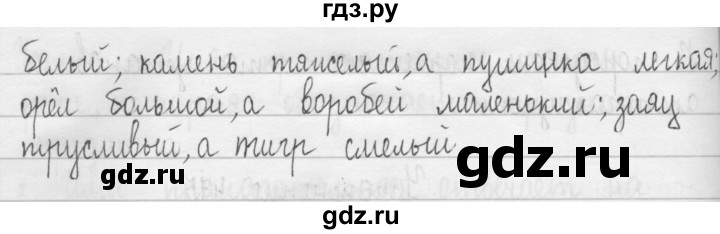 гдз.ру
белый; камень тяжелый, а пушинка легкая;
орёл большой, а воробей маленький; заяц
трусливый, а тигр смелый
gdz.ru
gdz.ru